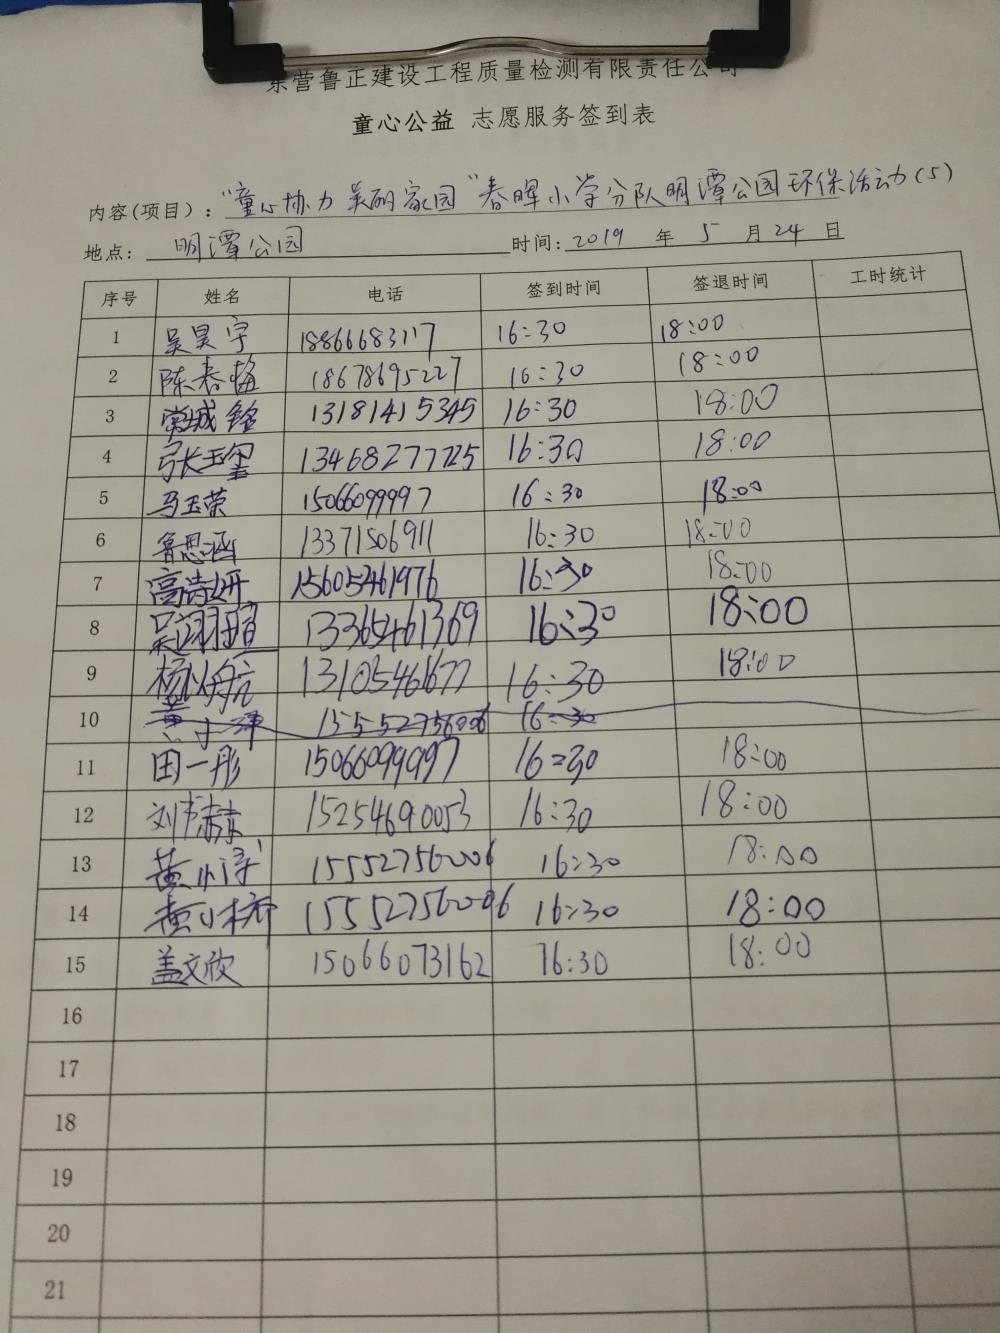 东营鲁正建设工程质量检测有限责任公司
童心公益 志愿服务签到表
内容(项目)："童心协力 美丽家园"春晖小学分队明潭公园环保活动(5)
地点： 明潭公园 时间: 2019 年 5 月 24 日
序号 姓名 电话 签到时间 签退时间 工时统计
1 吴昊宇 18866683117 16:30 18:00
2 陈春梅 18678695227 16:30 18:00
3 城铭 13181415345 16:30 18:00
4 张玉玺 13468277725 16:30 18:00
5 马玉荣 15066099997 16:30 18:00
6 鲁思涵 13371506911 16:30 18:00
7 高诗妍 15605461976 16:30 18:00
8 吴翊瑄 13365461369 16:30 18:00
9 杨以航 13105461677 16:30 18:00
10 黄小 15552756006 16:30
11 田一彤 15066099997 16:30 18:00
12 刘书赫 15254690053 16:30 18:00
13 黄小 15552756006 16:30 18:00
14 黄小桥 15552756006 16:30 18:00
15 盖文欣 15066073162 16:30 18:00
16
17
18
19
20
21